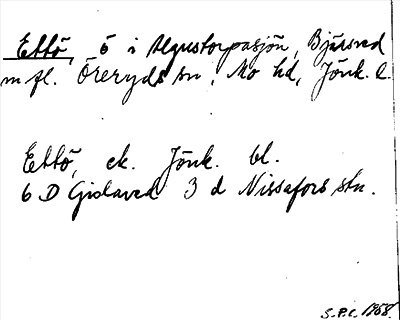 Ettö, ö i Algustorpasjön, Bjärsved
m fl. Öreryds sn, Mo hd, Jönk. l.
Ettö, ek. Jönk. bl.
6 D Gislaved 3 d Nissafors stn.
S.P.C. 1968.